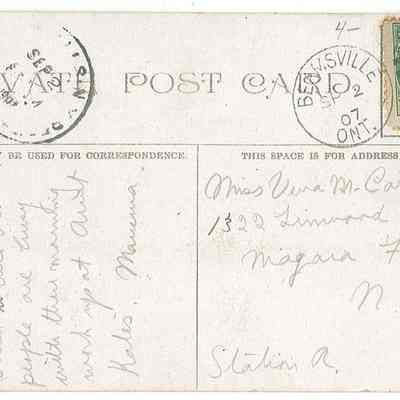 4-
SEP 2
VATE POST CARD
BEAMSVILLE
SP 2
07
ONT.
Y BE USED FOR CORRESPONDENCE.
THIS SPACE IS FOR ADDRESS
people are busy
with their morning
work up at Aunt
Kate's.
Miss Vera Mc Ca
1322 Linwood
Niagara F
N.
Station A.